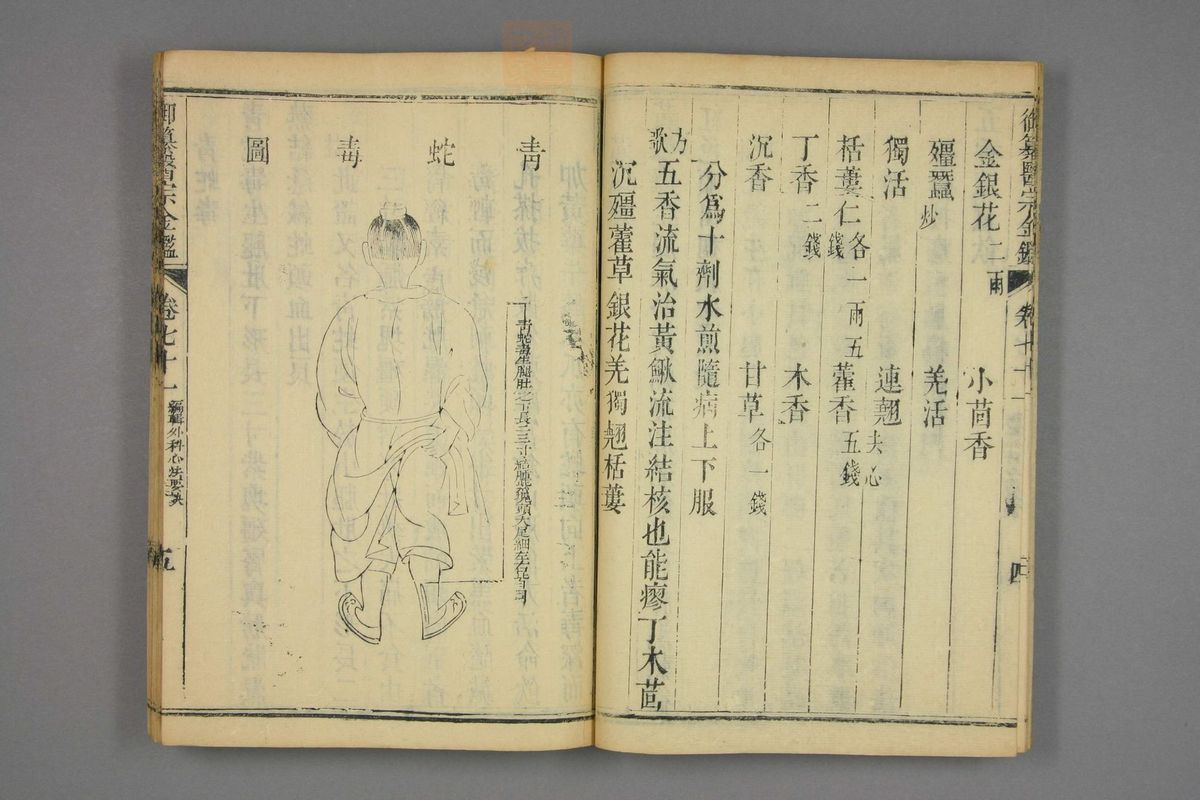 御纂醫宗金鑑
卷七十一
四
金銀花二兩
小茴香
殭蠶炒
羌活
獨活
連翹去心
栝蔞仁各一兩五錢
藿香五錢
丁香二錢
木香
沉香
甘草各一錢
分爲十劑水煎隨病上下服
方歌
五香流氣治黃鰍流注結核也能瘳丁木茴
沉殭藿草銀花羌獨翹栝蔞
青蛇毒圖
青蛇毒生腿肚之下長二三寸結腫塊頭大尾細左右皆同
御纂醫宗金鑑
卷七十一
編輯外科心法要訣